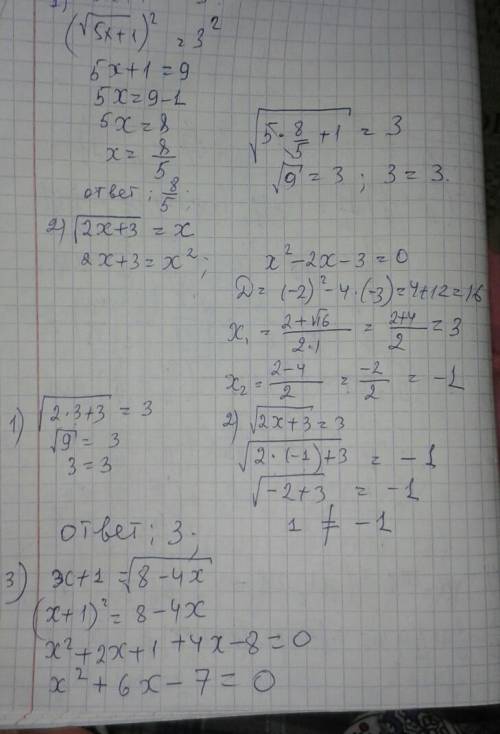 (√5x+1)² = 3²
5x+1 = 9
5x = 9-1
5x = 8
x = 8/5
ответ; 8/5;
√5·8/5+1 = 3
√9 = 3 ; 3 = 3.
2) √2x+3 = x
2x+3 = x² ;
x²-2x-3 = 0
D = (-2)²-4·(-3)=4+12=16
x₁ = 2+√16/2·1 = 2+4/2 = 3
x₂ = 2-4/2 = -2/2 = -1
1) √2·3+3 = 3
√9 = 3
3 = 3
2) √2x+3 = 3
√2·(-1)+3 = -1
√-2+3 = -1
1 ≠ -1
ответ; 3;
3) x+1 = √8-4x
(x+1)² = 8-4x
x²+2x+1+4x-8=0
x²+6x-7=0